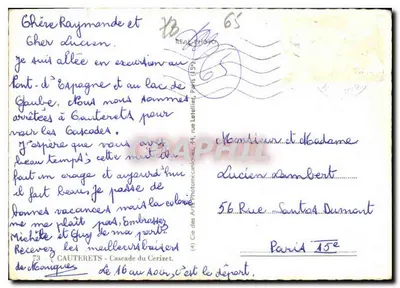 Chère Raymonde et
Cher Lucien.
Je suis allée en excursion au
Pont-d'Espagne et au lac de
Gaube, Nous nous sommes
arrêtées à Cauterets pour
voir les Cascades.
J'espère que vous avez
beau temps, cette nuit il
fait un orage et aujourd'hui
il fait beau, je passe de
bonnes vacances mais la colonie
ne me plaît pas, Embrassez
Michèle et Guy de ma part.
Recevez les meilleurs baisers
de Monique
73 CAUTERETS - Cascade du Cerizet.
le 16 au soir, c'est le départ.
65
REAL-PHOTO
65
CARTPHIL
44, rue Letellier, Paris (15e)
Monsieur et Madame
Lucien Lambert
56 Rue Santos Dumont
Paris 15e